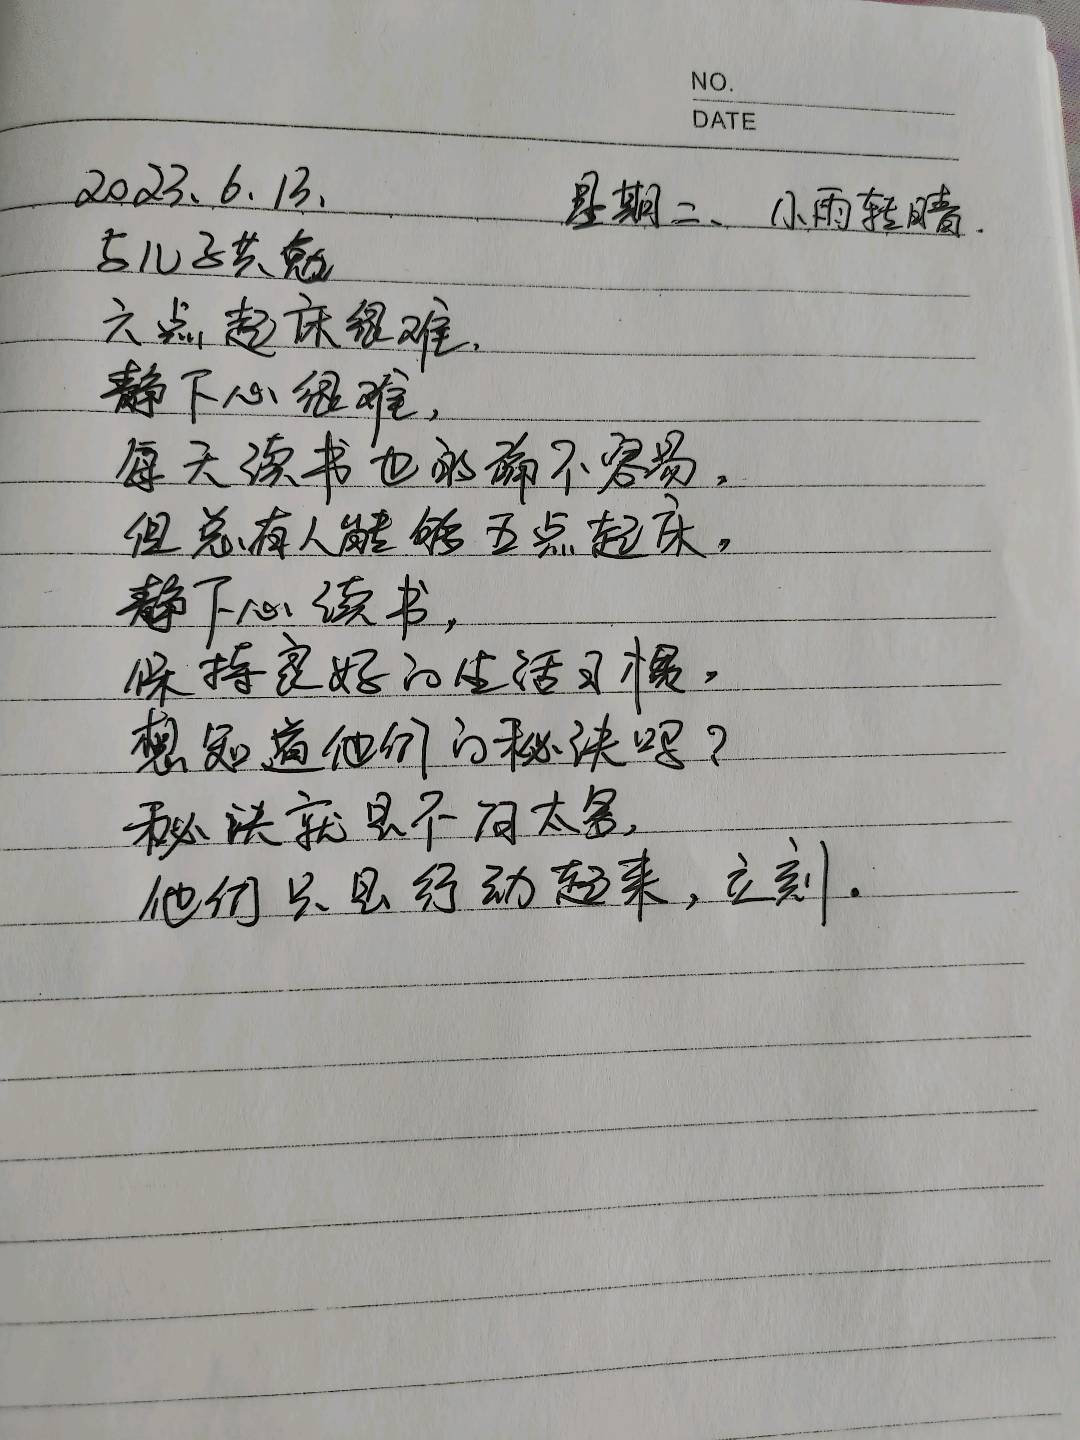 NO.
DATE
2023、6、13、 星期二、 小雨转晴.
与儿子共勉
六点起床很难,
静下心很难,
每天读书也的确不容易,
但总有人能够五点起床,
静下心读书,
保持良好的生活习惯,
想知道他们的秘诀吗?
秘诀就是不可太多,
他们只是行动起来,立刻.